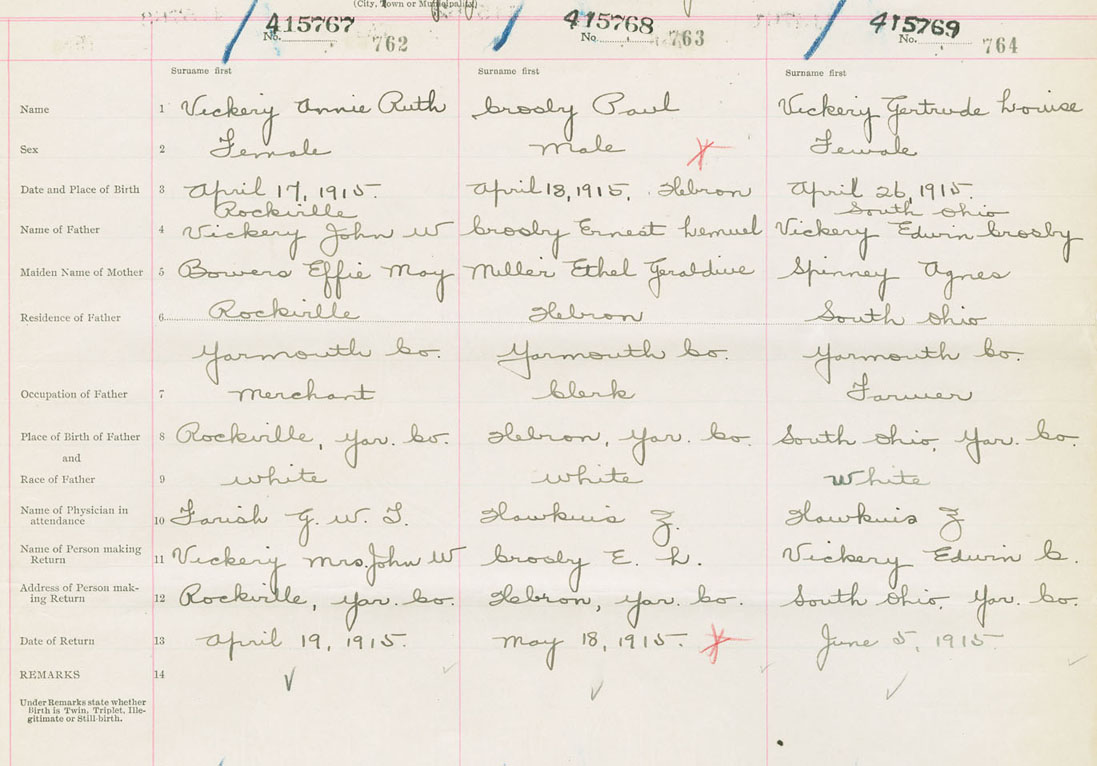 (City, Town or Municipality)
415767 415768 415769
No. 762 No. 763 No. 764
Surname first Surname first Surname first
Name 1 Vickery Annie Ruth Crosby Paul Vickery Gertrude Louise
Sex 2 Female Male Female
Date and Place of Birth 3 April 17, 1915. April 18, 1915, Hebron April 26, 1915.
Rockville South Ohio
Name of Father 4 Vickery John W Crosby Ernest Lemuel Vickery Edwin Crosby
Maiden Name of Mother 5 Bowers Effie May Miller Ethel Geraldine Spinney Agnes
Residence of Father 6 Rockville Hebron South Ohio
Yarmouth Co. Yarmouth Co. Yarmouth Co.
Occupation of Father 7 Merchant Clerk Farmer
Place of Birth of Father 8 Rockville, Yar. Co. Hebron, Yar. Co. South Ohio, Yar. Co.
and
Race of Father 9 White White White
Name of Physician in
attendance 10 Farish G. W. T. Hawkins Z. Hawkins Z
Name of Person making
Return 11 Vickery Mrs. John W Crosby E. L. Vickery Edwin C.
Address of Person mak-
ing Return 12 Rockville, Yar. Co. Hebron, Yar. Co. South Ohio, Yar. Co.
Date of Return 13 April 19, 1915. May 18, 1915. June 5, 1915.
REMARKS 14
Under Remarks state whether
Birth is Twin, Triplet, Ille-
gitimate or Still-birth.